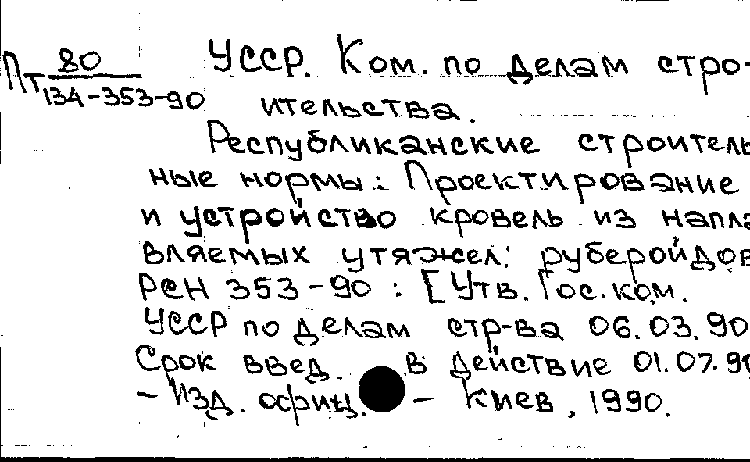 80 УССР. Ком. по делам стро-
Пт 134-353-90 ительства.
Республиканские строитель
ные нормы: Проектирование
и устройство кровель из напла
вляемых утяжел. рубероидов
РСН 353-90 : [Утв. Гос. ком.
УССР по делам стр-ва 06.03.90
Срок введ. в действие 01.07.90
- Изд. офиц. - Киев, 1990.